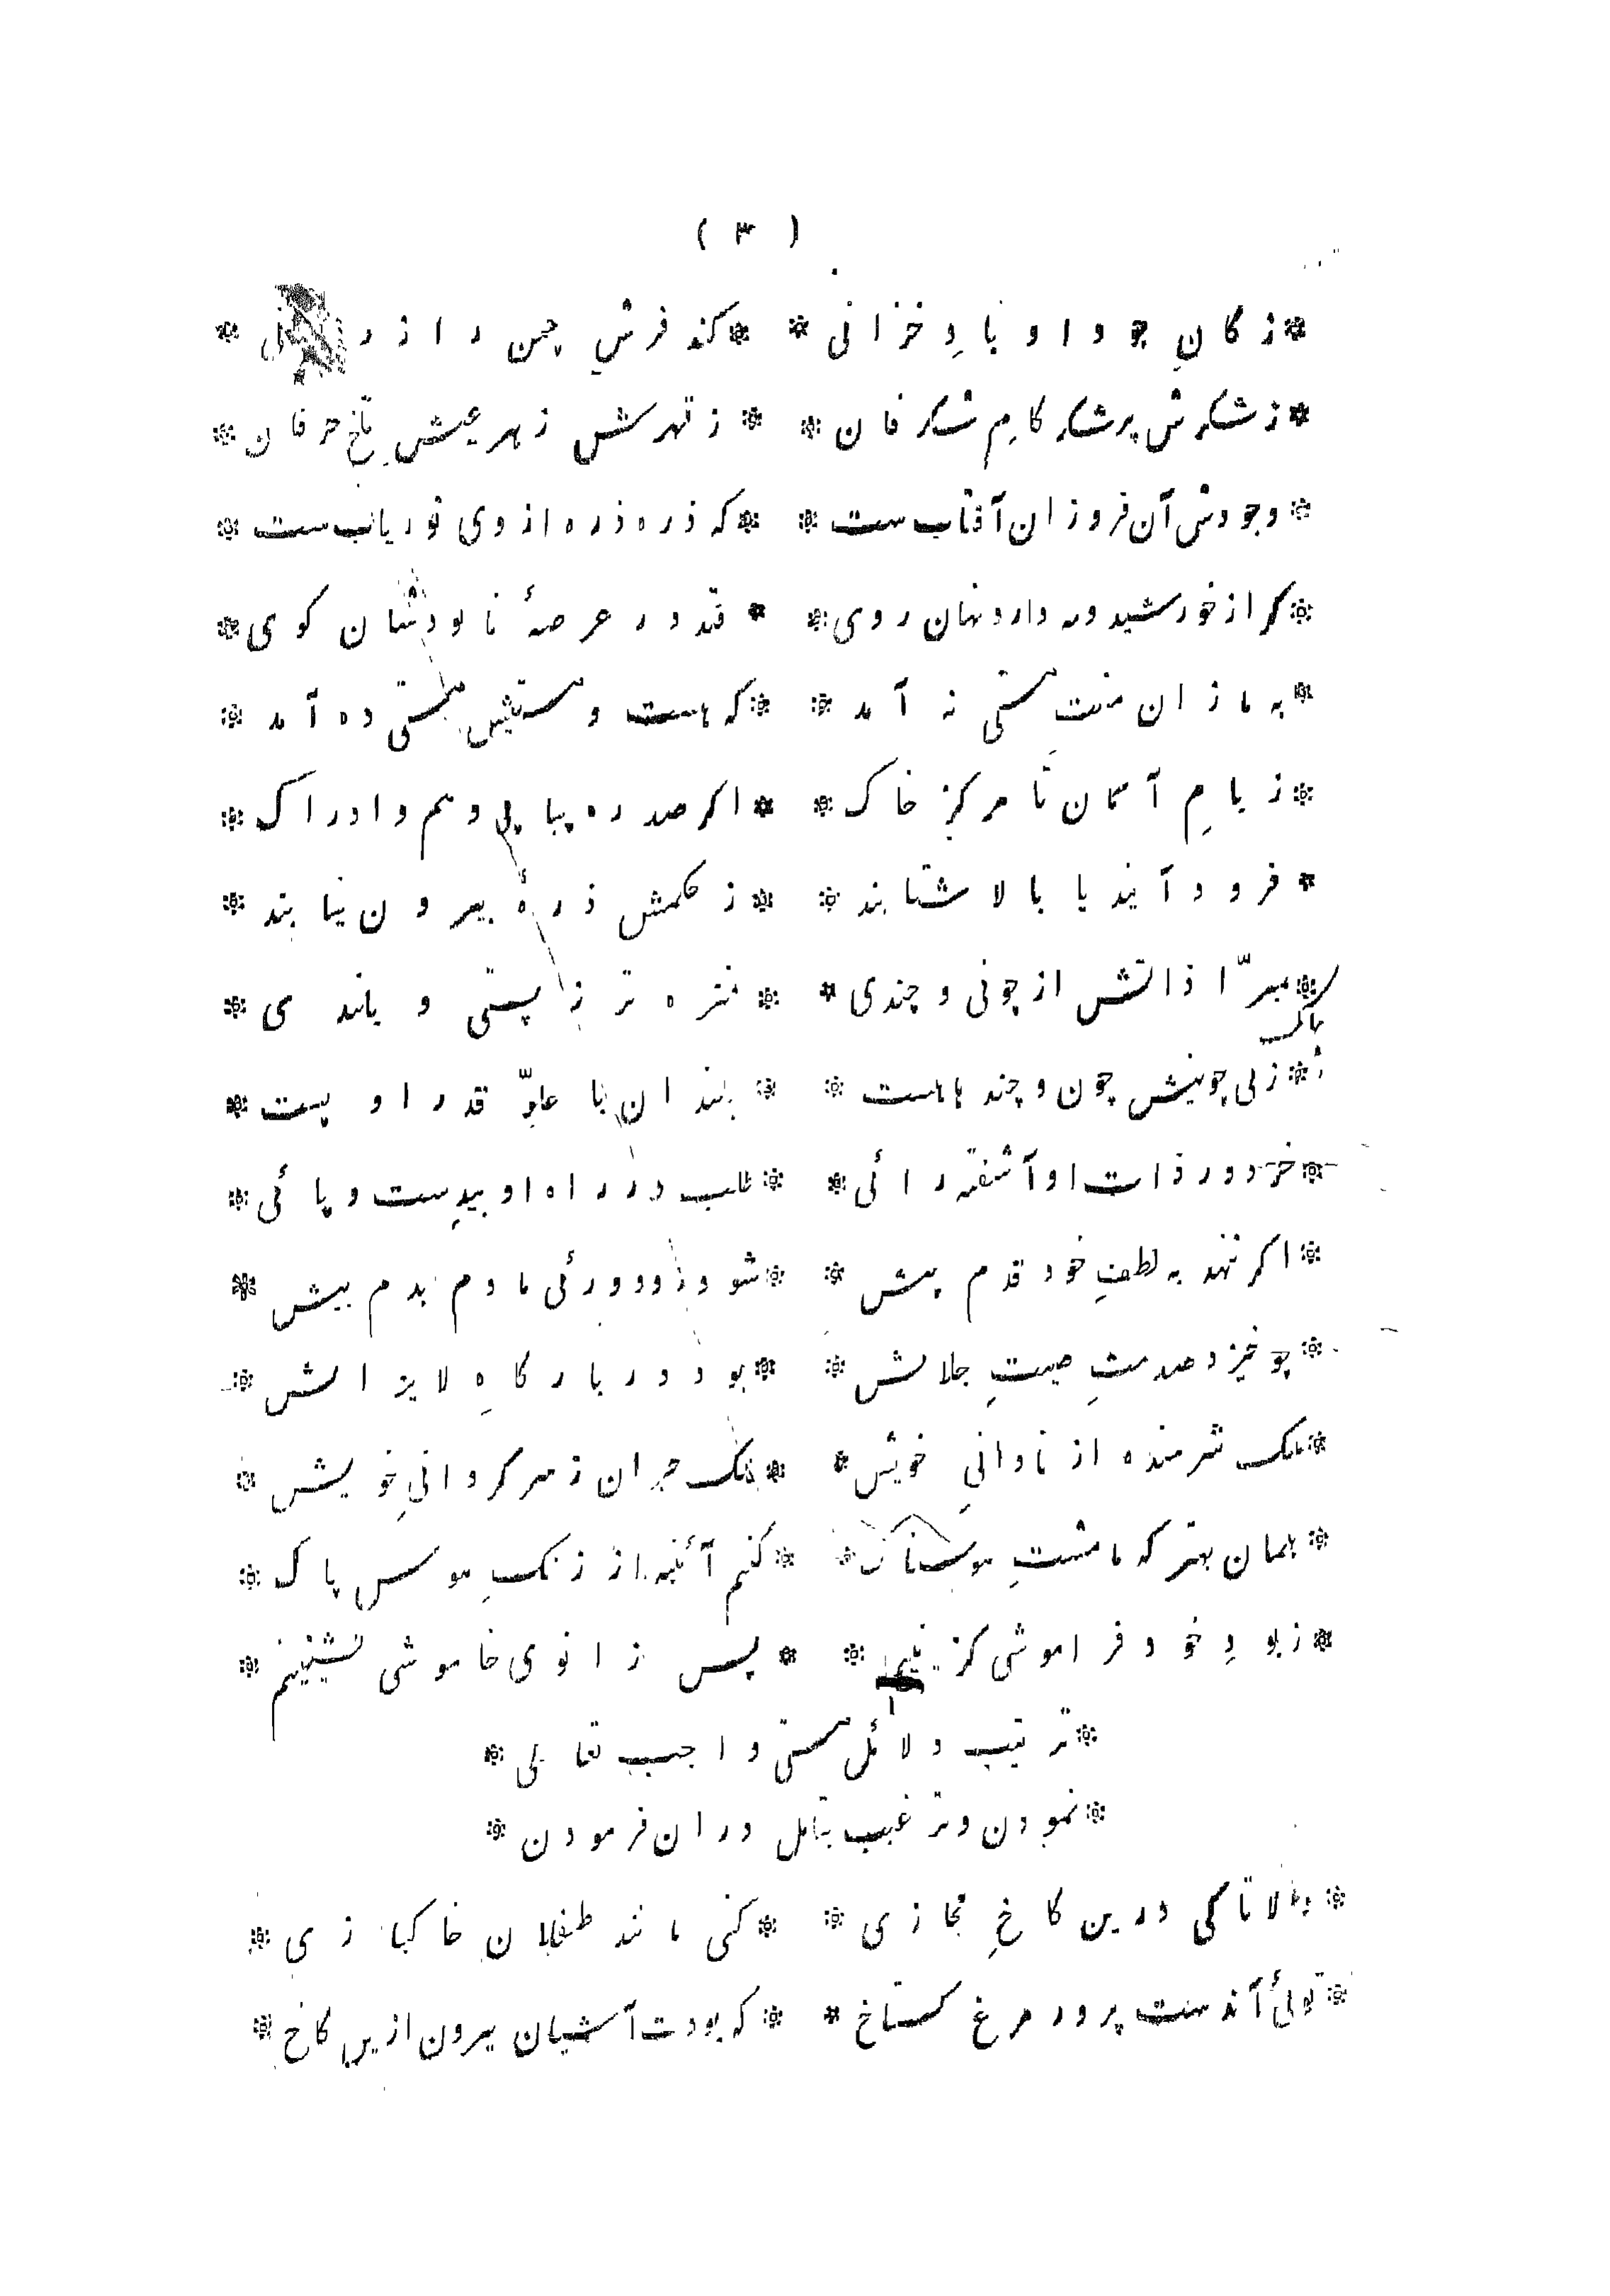 ( ۳ )
* ز کانِ جود او بادِ خزانی * * کند فرشِ چمن را زر *
* ز شکرش پر شکر کامِ شکرفان * * ز قهرش زهر عیش تلخ حرفان *
* وجودش آن فروزان آفتاب ست * * که ذره ذره از وی نور یاب ست *
* کر از خورشید و مه دارد نهان روی * * فتد در عرصهٔ نابودشان کوی *
* به ما زان منت هستی نه آمد * * که هست و هستیش هستی ده آمد *
* ز بامِ آسمان تا مرکزِ خاک * * اکر صد ره بپا پی وهم و ادراک *
* فرود آیند یا بالا شتابند * * ز حکمش ذرهٔ بیرون نیابند *
* مبرّا ذاتش از چونی و چندی * * منزه تر ز پستی و بلندی *
* ز بی چونیش چون و چند ها هست * * بلندان با علوِّ قدر او پست *
* خرد در ذات او آشفته رائی * * طلب در راه او بیدست و پائی *
* اکر ننهد به لطفِ خود قدم پیش * * شود زو دورئی ما دم بدم بیش *
* چو خیزد صدمتِ صیتِ جلالش * * بود در بارکاهِ لایزالش *
* ملک شرمنده از نادانیِ خویش * * فلک حیران ز سرکردانیِ خویش *
* همان بهتر که ما مشتِ هوسناک * * کنیم آئینه از زنکِ هوس پاک *
* ز بودِ خود فراموشی کزینیم * * پس زانوی خاموشی نشینیم *
* ترتیب دلائل هستی واجب تعالی *
* نمودن و ترغیب بتامل دران فرمودن *
* دلا تا کی درین کاخِ مجازی * * کنی مانند طفلان خاکبازی *
* توئی آن دست پرور مرغ کستاخ * * که بودت آشیان بیرون ازین کاخ *